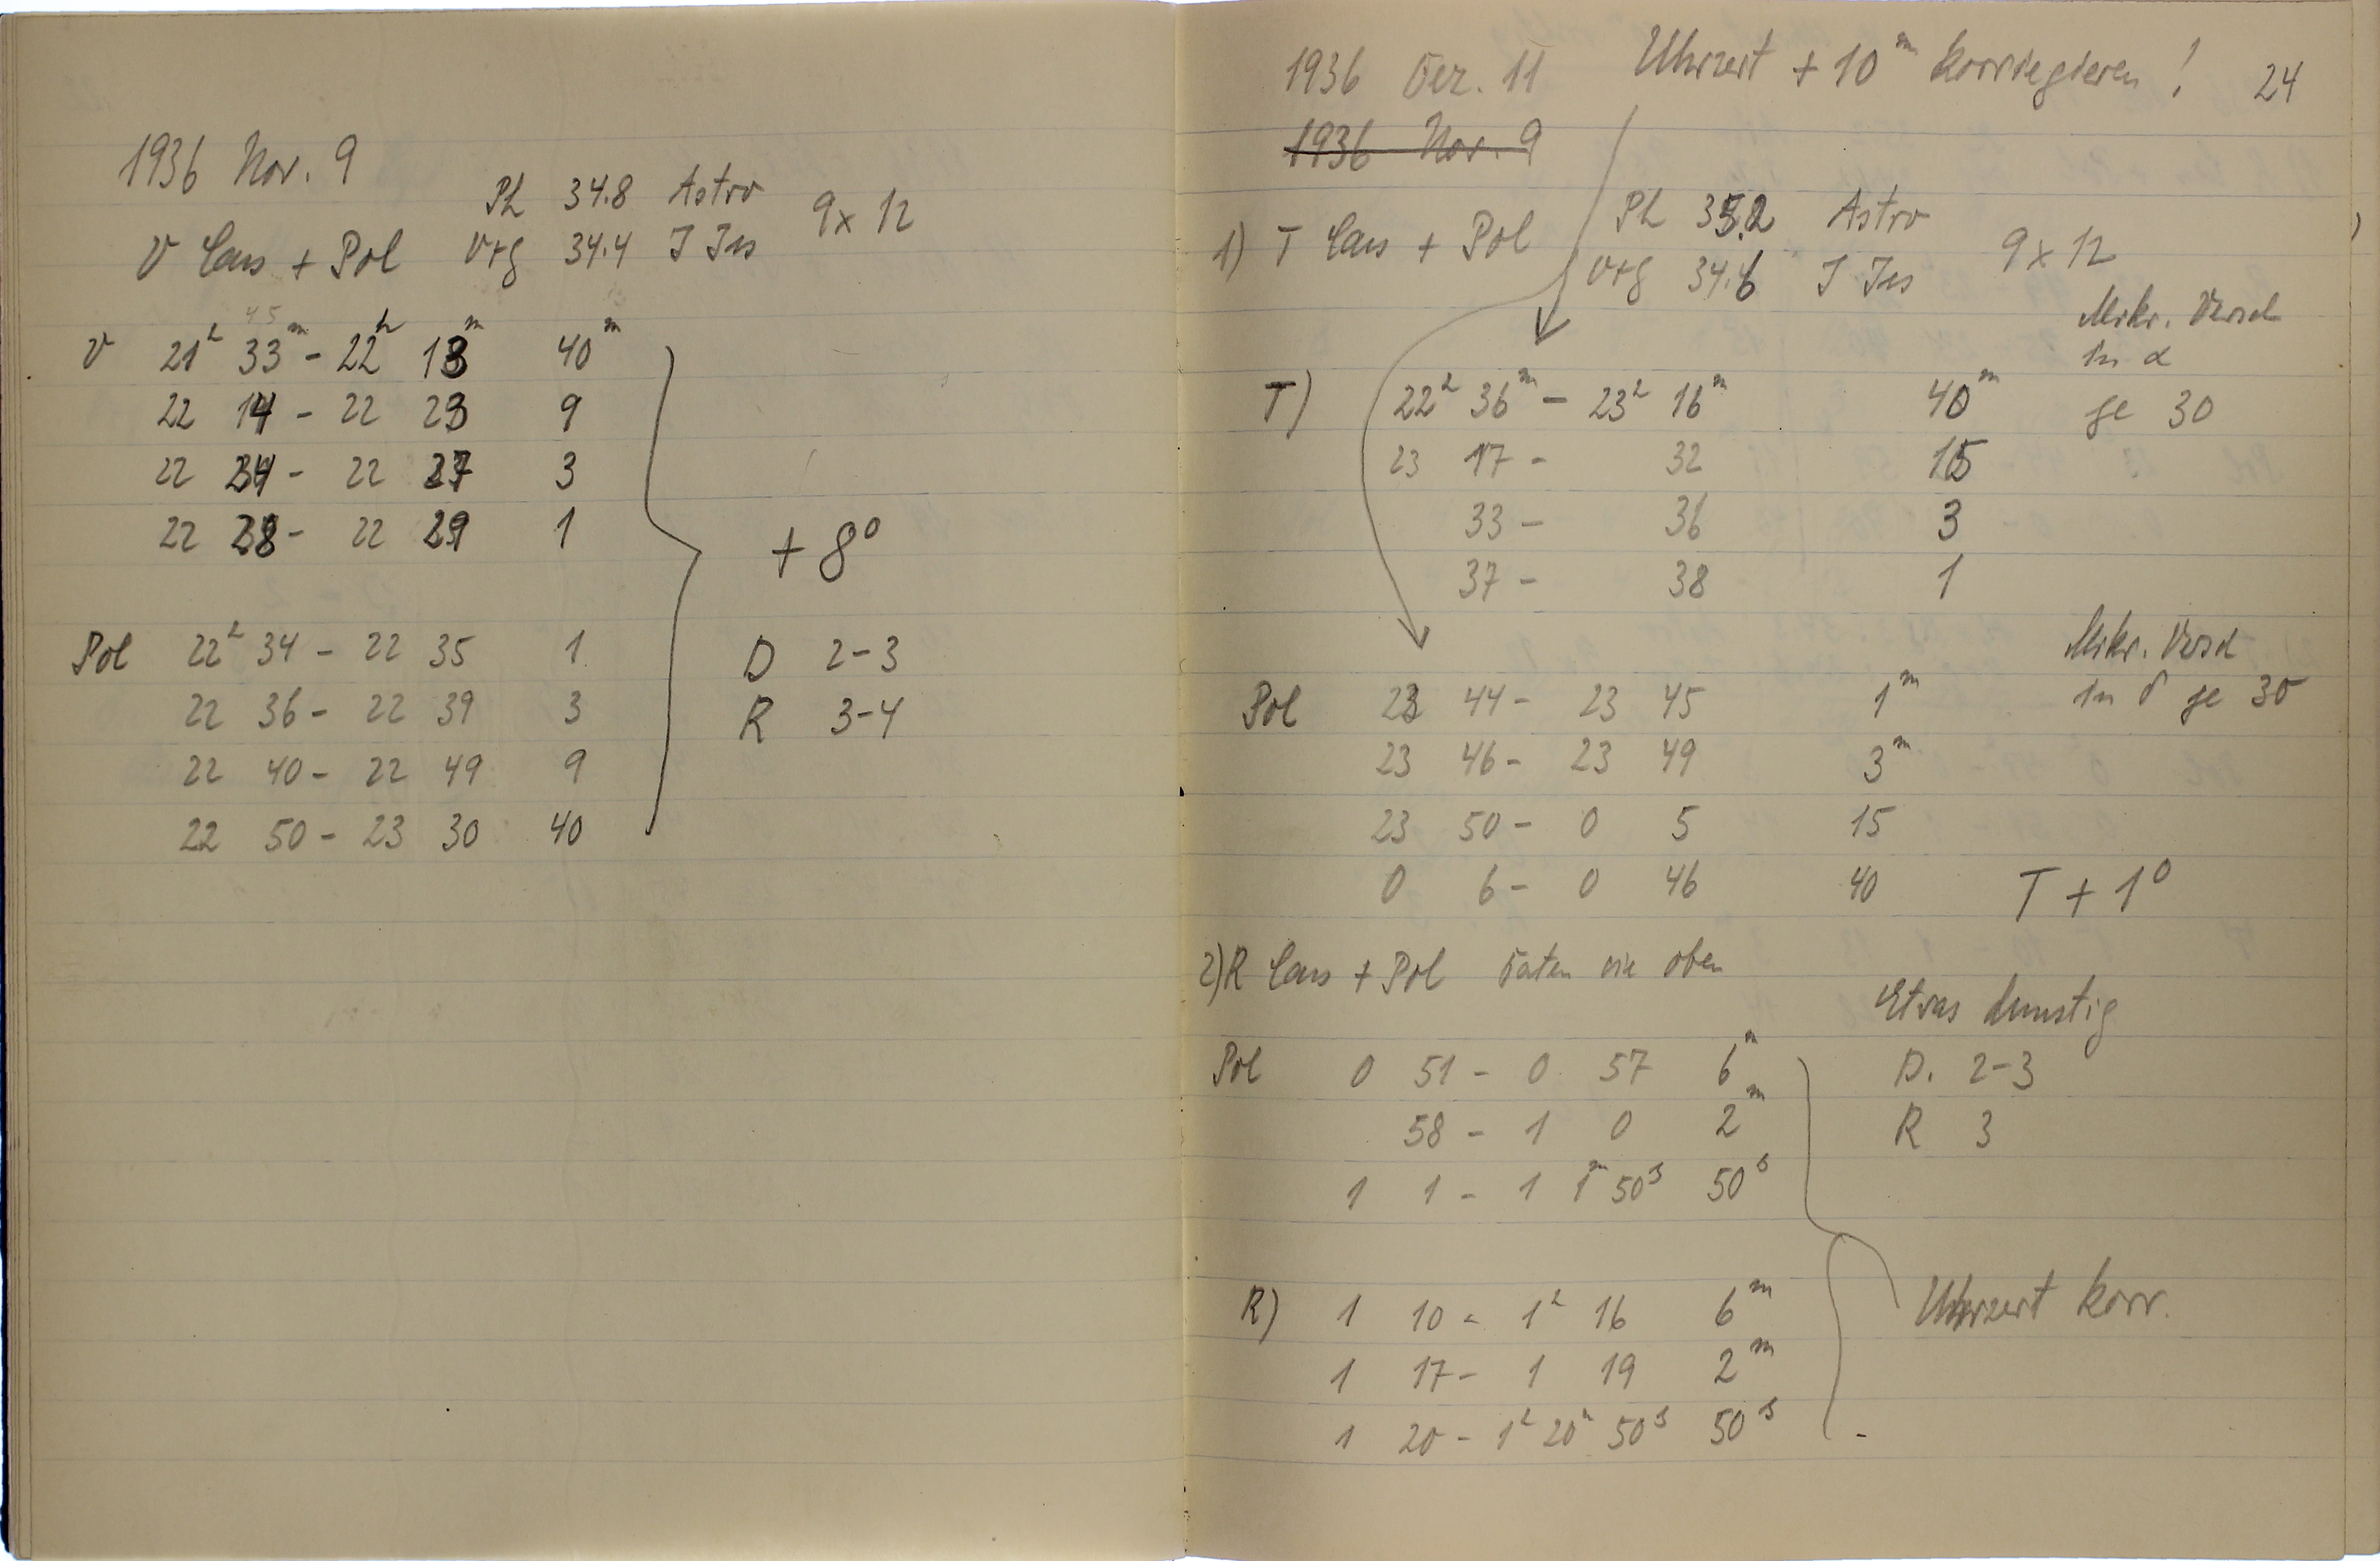 1936 Nov. 9
Ph 34.8 Astro 9x12
V Cass + Pol V+g 34.4 J Jss
45
V 21ʰ 33ᵐ - 22ʰ 13ᵐ 40ᵐ
22 14 - 22 23 9
22 24 - 22 27 3
22 28 - 22 29 1
+ 8⁰
Pol 22ʰ 34 - 22 35 1
22 36 - 22 39 3
22 40 - 22 49 9
22 50 - 23 30 40
D 2-3
R 3-4
1936 Dez. 11 Uhrzeit + 10ᵐ korriegieren! 24
1936 Nov. 9
1) T Cass + Pol Ph 35.2 Astro
V+g 34.6 J Jss 9x12
Mikr. Versch
in α
T) 22ʰ 36ᵐ - 23ʰ 16ᵐ 40ᵐ je 30
23 17 - 32 15
33 - 36 3
37 - 38 1
Mikr. Versch
in δ je 30
Pol 23 44 - 23 45 1ᵐ
23 46 - 23 49 3ᵐ
23 50 - 0 5 15
0 6 - 0 46 40
T + 1⁰
2) R Cass + Pol Daten wie oben
Etwas dunstig
Pol 0 51 - 0 57 6ᵐ
58 - 1 0 2ᵐ
1 1 - 1 1ᵐ 50ˢ 50ˢ
D. 2-3
R 3
R) 1 10 - 1ʰ 16 6ᵐ
1 17 - 1 19 2ᵐ
1 20 - 1ʰ 20ᵐ 50ˢ 50ˢ
Uhrzeit korr.